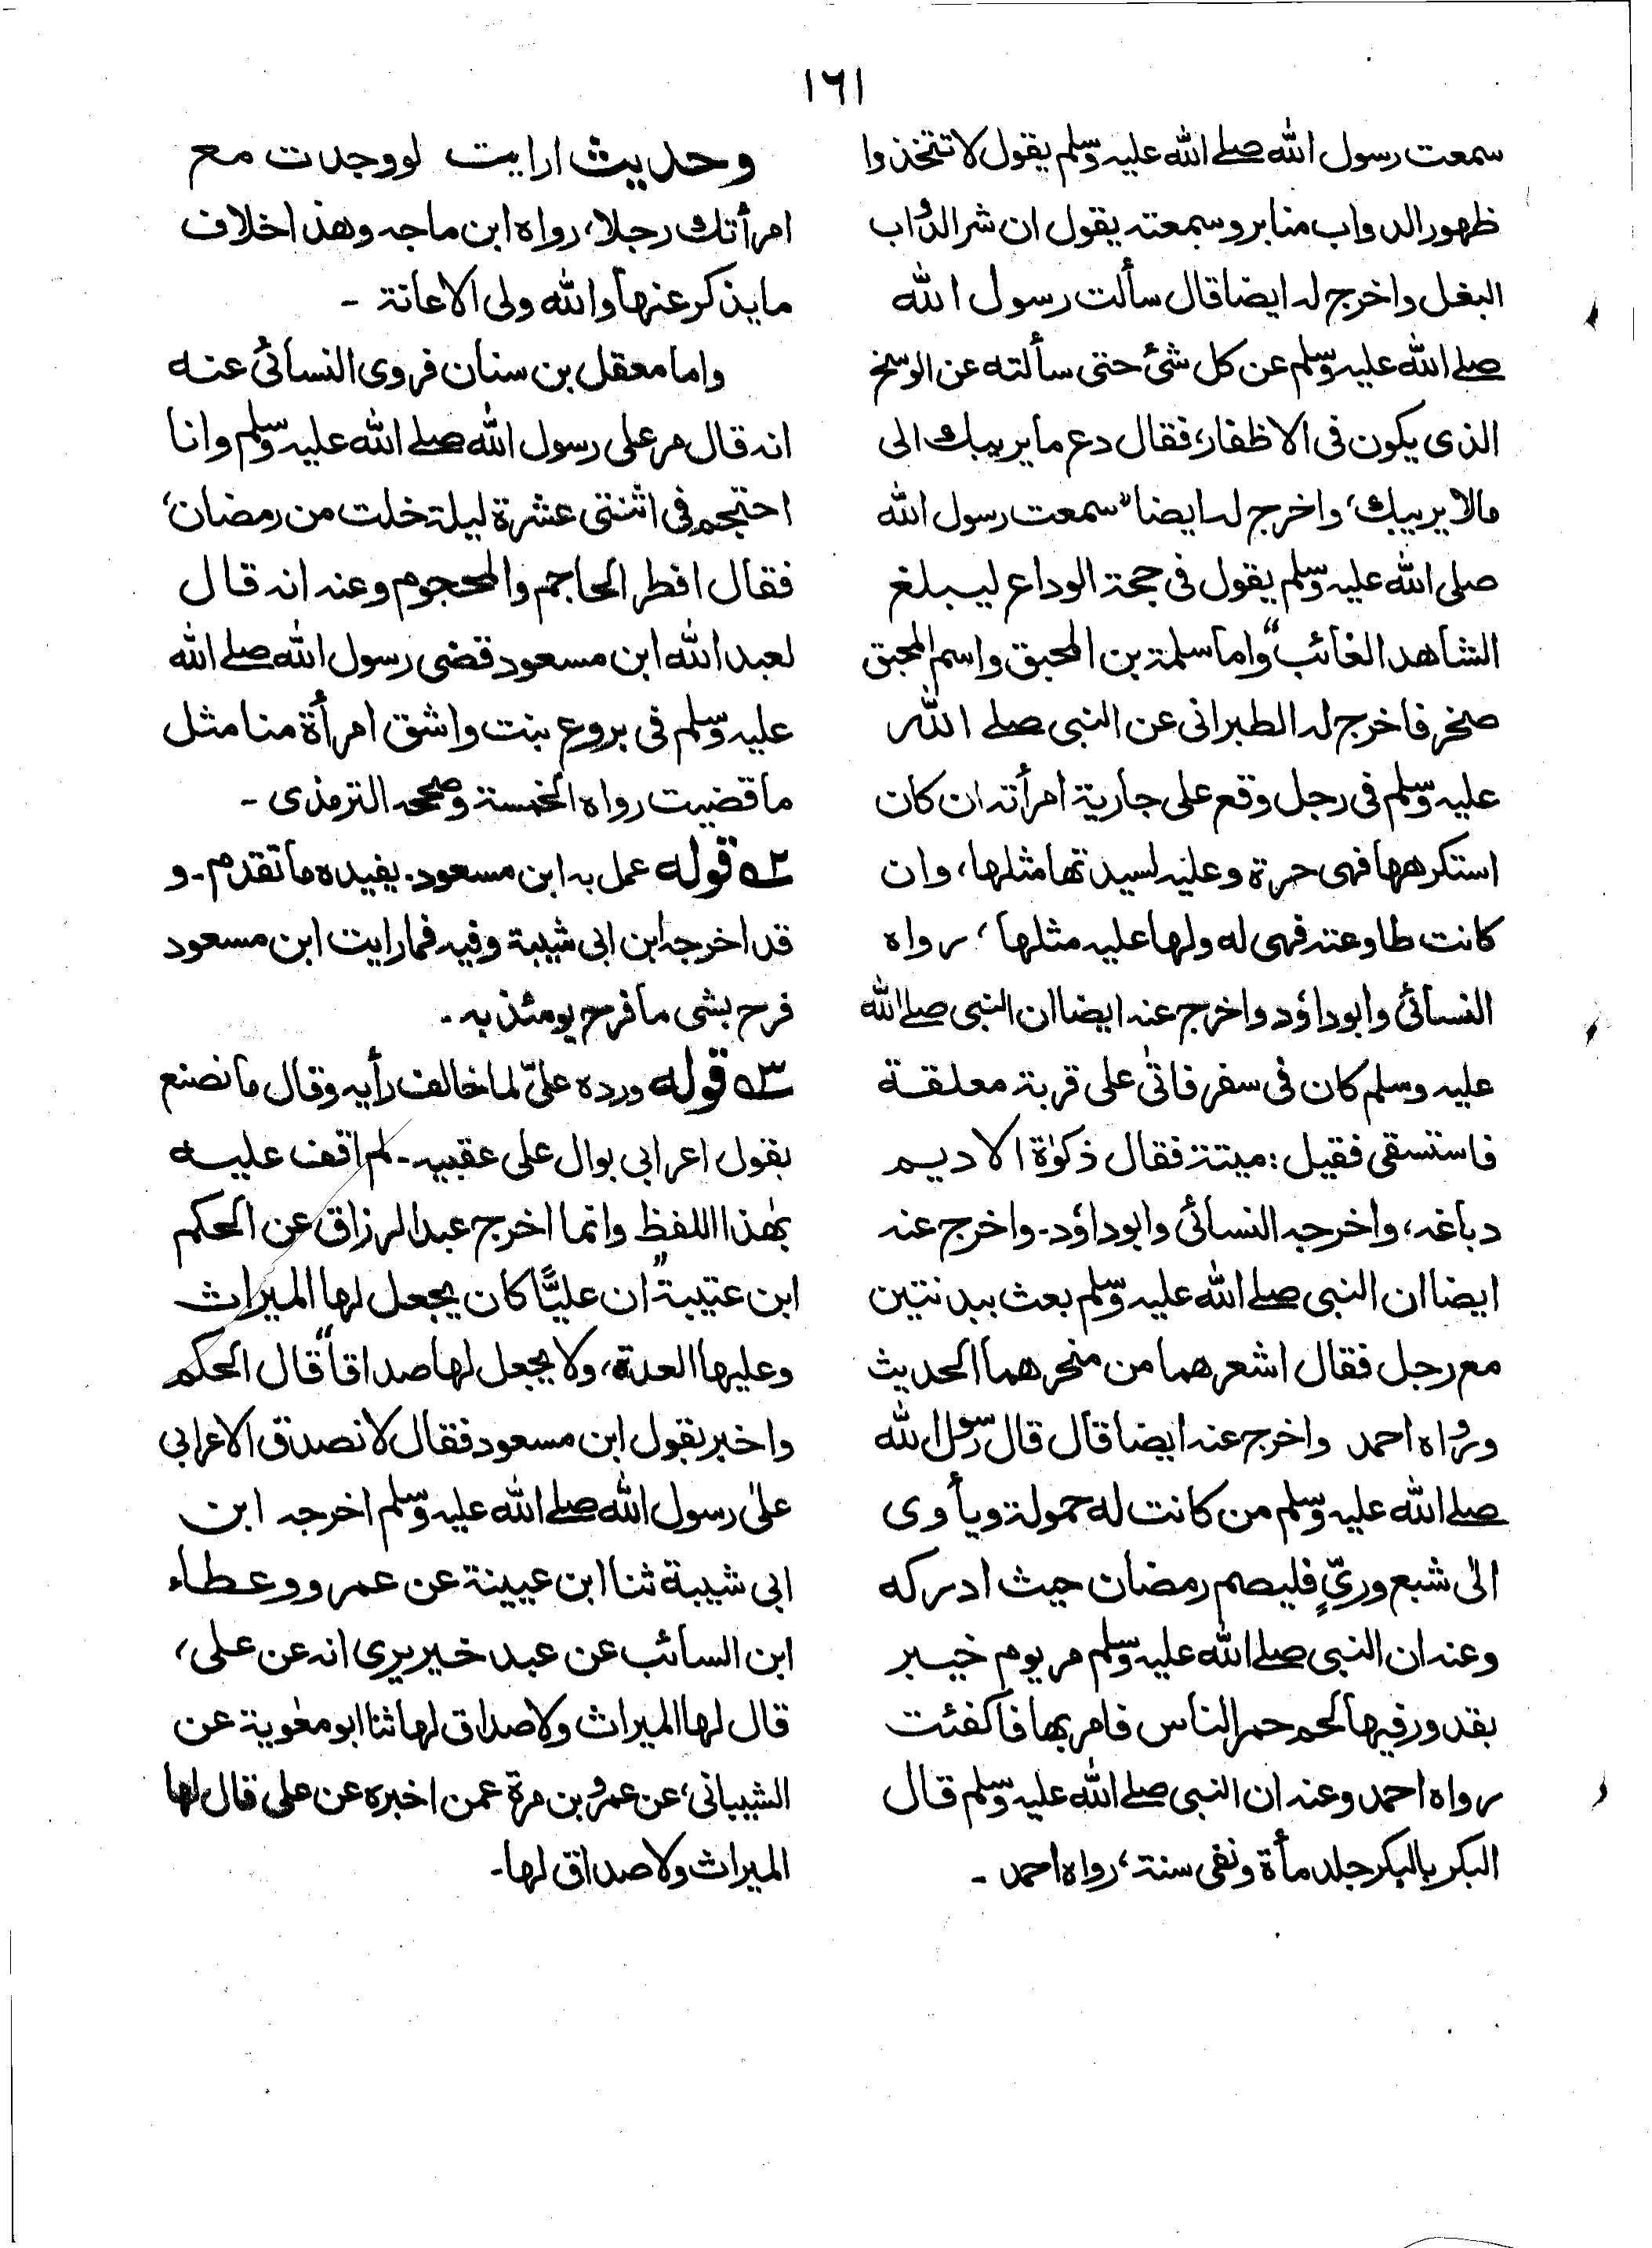 ١٦١
سمعت رسول الله صلے الله عليه وسلم يقول لا تتخذوا
ظهور الدواب منابر وسمعته يقول ان شر الدواب
البغل واخرج له ايضا قال سألت رسول الله
صلے الله عليه وسلم عن كل شئ حتى سألته عن الوسخ
الذى يكون فى الاظفار، فقال دع ما يريبك الى
مالا يريبك، واخرج له ايضا "سمعت رسول الله
صلى الله عليه وسلم يقول فى حجة الوداع ليبلغ
الشاهد الغائب" واما سلمة بن المحبق واسم المحبق
صخر فاخرج له الطبرانى عن النبى صلے الله
عليه وسلم فى رجل وقع على جارية امرأته ان كان
استكرهها فهى حرة وعليه لسيدتها مثلها، وان
كانت طاوعته فهى له ولها عليه مثلها، رواه
النسائى وابوداؤد واخرج عنه ايضا ان النبى صلے الله
عليه وسلم كان فى سفر فاتى على قربة معلقة
فاستسقى فقيل: ميتة فقال ذكوٰة الاديم
دباغه، واخرجه النسائى وابوداؤد- واخرج عنه
ايضا ان النبى صلے الله عليه وسلم بعث ببدنتين
مع رجل فقال اشعرهما من منحرهما الحديث
ورواه احمد واخرج عنه ايضا قال قال رسول الله
صلے الله عليه وسلم من كانت له حمولة ويأوى
الى شبع وريٍّ فليصم رمضان حيث ادركه
وعنه ان النبى صلے الله عليه وسلم مر يوم خيبر
بقدور فيها لحم حمر الناس فامر بها فاكفئت
رواه احمد وعنه ان النبى صلے الله عليه وسلم قال
البكر بالبكر جلد مأة ونفى سنة، رواه احمد -
وحديث ارايت لو وجدت مع
امرأتك رجلا، رواه ابن ماجه وهذا خلاف
ما يذكر عنها والله ولى الاعانة -
واما معقل بن سنان فروى النسائى عنه
انه قال مر على رسول الله صلے الله عليه وسلم وانا
احتجم فى اثنتى عشرة ليلة خلت من رمضان،
فقال افطر الحاجم والمحجوم وعنه انه قال
لعبد الله ابن مسعود قضى رسول الله صلے الله
عليه وسلم فى بروع بنت واشق امرأة منا مثل
ما قضيت رواه الخمسة وصححه الترمذى -
٢ قوله عمل به ابن مسعود- يفيده ما تقدم- و
قد اخرجه ابن ابى شيبة وفيه فما رايت ابن مسعود
فرح بشى ما فرح يومئذ به -
٣ قوله ورده علىّ لما خالف رأيه وقال ما نصنع
بقول اعرابى بوال على عقبيه- لم اقف عليه
بهٰذا اللفظ وانما اخرج عبد الرزاق عن الحكم
ابن عتيبة "ان عليًّا كان يجعل لها الميراث
وعليها العدة، ولا يجعل لها صداقا" قال الحكم
واخبر بقول ابن مسعود فقال لا نصدق الاعرابى
علىٰ رسول الله صلے الله عليه وسلم اخرجه ابن
ابى شيبة ثنا ابن عيينة عن عمرو وعطاء
ابن السائب عن عبد خير يرى انه عن على،
قال لها الميراث ولا صداق لها ثنا ابو معٰوية عن
الشيبانى، عن عمرو بن مرة عمن اخبره عن على قال لها
الميراث ولا صداق لها-